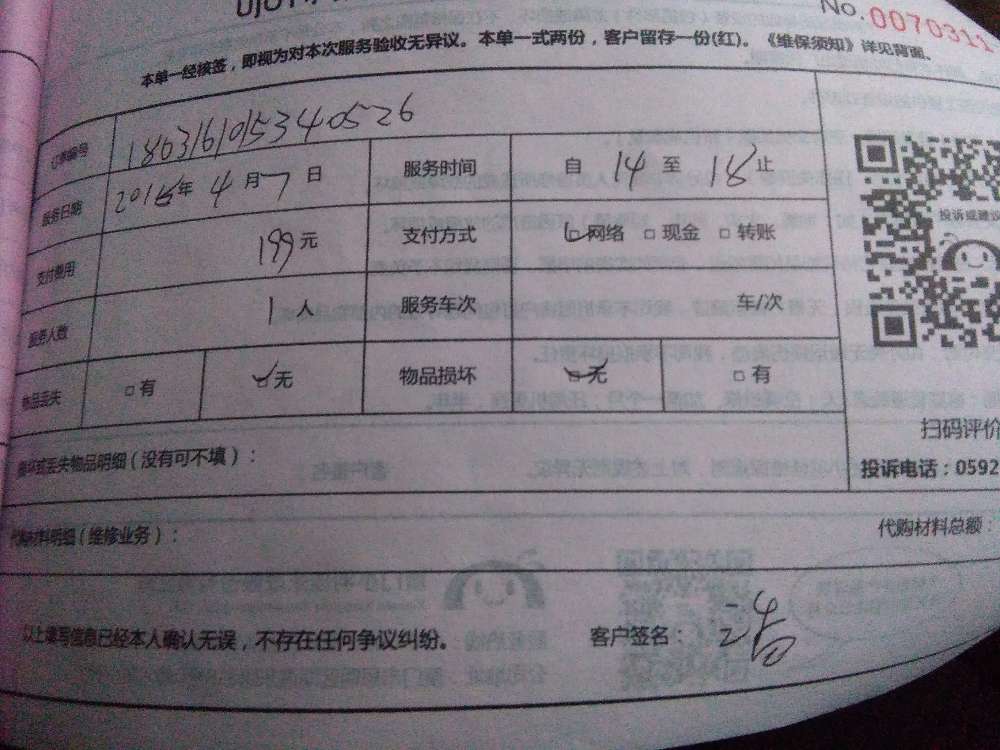 No.0070311
本单一经核签，即视为对本次服务验收无异议。本单一式两份，客户留存一份(红)。《维保须知》详见背面。
订单编号 18631610153440526
服务日期 2018年 4 月 7 日 服务时间 自 14 至 18 止
支付费用 199元 支付方式 网络 现金 转账
服务人数 1 人 服务车次 车/次
物品丢失 有 无 物品损坏 无 有
投诉或建议
扫码评价
损坏或丢失物品明细（没有可不填）：
投诉电话：0592
代购材料明细（维修业务）：
代购材料总额：
以上填写信息已经本人确认无误，不存在任何争议纠纷。 客户签名：